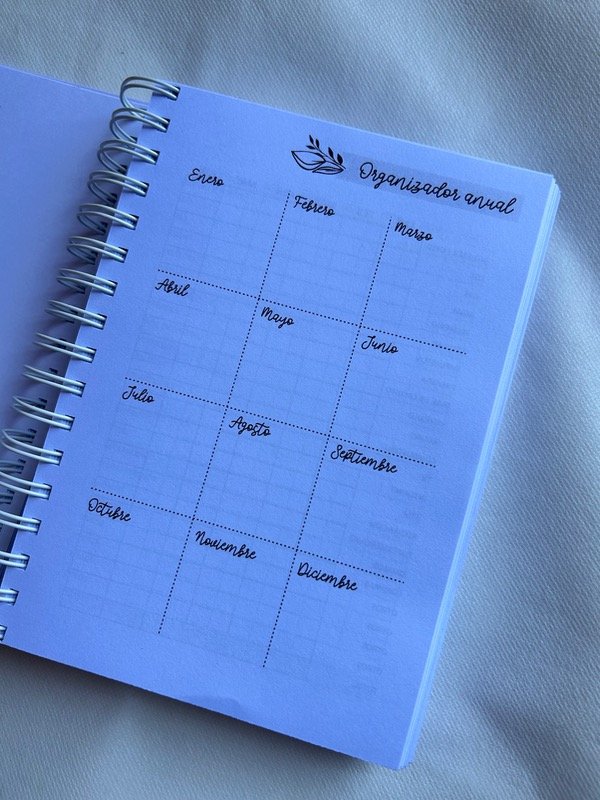 Organizador anual
Enero
Febrero
Marzo
Abril
Mayo
Junio
Julio
Agosto
Septiembre
Octubre
Noviembre
Diciembre